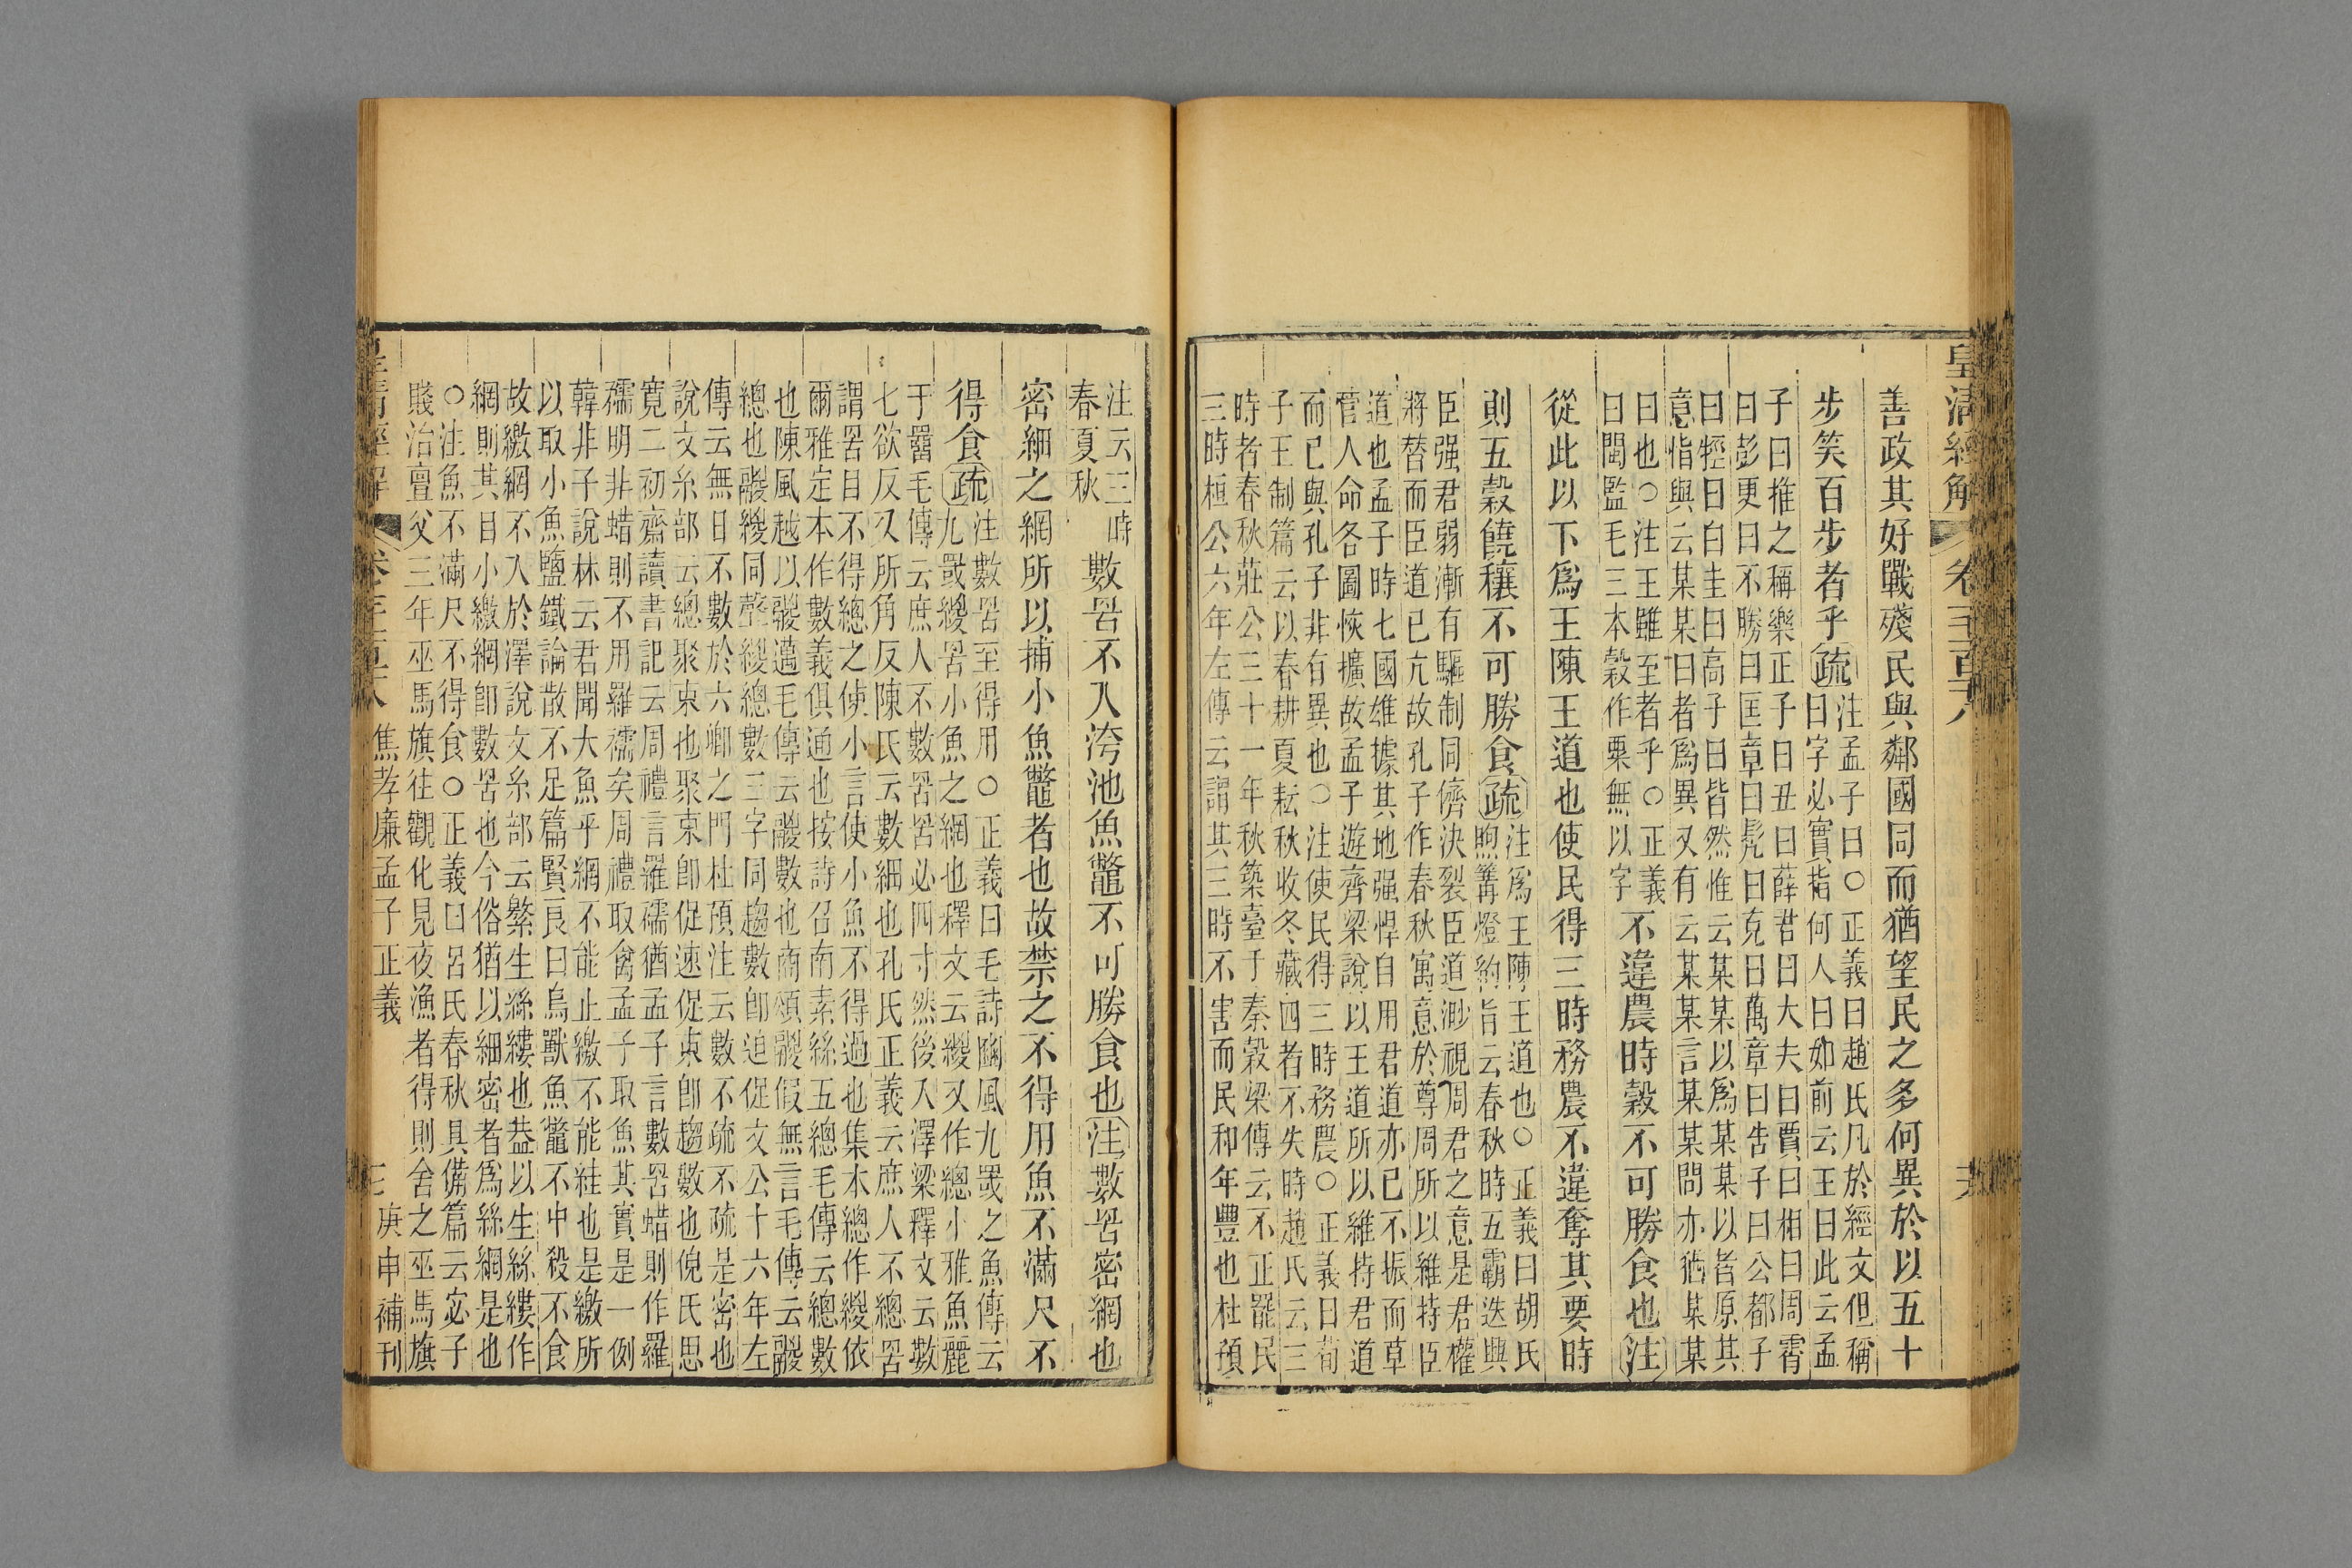 皇清經解
善政其好戰殘民與鄰國同而猶望民之多何異於以五十
步笑百步者乎疏
注孟子曰○正義曰趙氏凡於經文但稱
曰字必實指何人曰如前云王曰此云孟
子曰推之稱樂正子曰丑曰薛君曰大夫曰賈曰相曰周霄
曰彭更曰不勝曰匡章曰髡曰克曰萬章曰告子曰公都子
曰牼曰白圭曰高子曰皆然惟云某某以爲某某以皆原其
意恉與云某某曰者爲異又有云某某言某某問亦猶某某
曰也○注王雖至者乎○正義
曰閩監毛三本穀作粟無以字
不違農時穀不可勝食也注
從此以下爲王陳王道也使民得三時務農不違奪其要時
則五穀饒穰不可勝食疏
注爲王陳王道也○正義曰胡氏
煦篝燈約旨云春秋時五霸迭興
臣强君弱漸有驅制同儕決裂臣道渺視周君之意是君權
將替而臣道已亢故孔子作春秋寓意於尊周所以維持臣
道也孟子時七國雄據其地强悍自用君道亦已不振而草
菅人命各圖恢擴故孟子遊齊梁說以王道所以維持君道
而已與孔子非有異也○注使民得三時務農○正義曰荀
子王制篇云以春耕夏耘秋收冬藏四者不失時趙氏云三
時者春秋莊公三十一年秋築臺于秦穀梁傳云不正罷民
三時桓公六年左傳云謂其三時不害而民和年豐也杜預
注云三時
春夏秋
數罟不入洿池魚鼈不可勝食也注數罟密網也
密細之網所以捕小魚鼈者也故禁之不得用魚不滿尺不
得食疏
注數罟至得用○正義曰毛詩豳風九罭之魚傳云
九罭緵罟小魚之網也釋文云緵又作總小雅魚麗
于罶毛傳云庶人不數罟罟必四寸然後入澤梁釋文云數
七欲反又所角反陳氏云數細也孔氏正義云庶人不總罟
謂罟目不得總之使小言使小魚不得過也集本總作緵依
爾雅定本作數義俱通也按詩召南素絲五總毛傳云總數
也陳風越以鬷邁毛傳云鬷數也商頌鬷假無言毛傳云鬷
總也鬷緵同聲緵總數三字同趨數卽迫促文公十六年左
傳云無日不數於六卿之門杜預注云數不疏不疏是密也
說文糸部云總聚束也聚束卽促速促束卽趨數也倪氏思
寬二初齋讀書記云周禮言羅襦猶孟子言數罟蜡則作羅
襦明非蜡則不用羅襦矣周禮取禽孟子取魚其實是一例
韓非子說林云君聞大魚乎網不能止繳不能絓也是繳所
以取小魚鹽鐵論散不足篇賢良曰鳥獸魚鼈不中殺不食
故繳網不入於澤說文糸部云繁生絲縷也葢以生絲縷作
網則其目小繳網卽數罟也今俗猶以細密者爲絲網是也
○注魚不滿尺不得食○正義曰呂氏春秋具備篇云宓子
賤治亶父三年巫馬旗往觀化見夜漁者得則舍之巫馬旗
焦孝廉孟子正義
庚申補刊